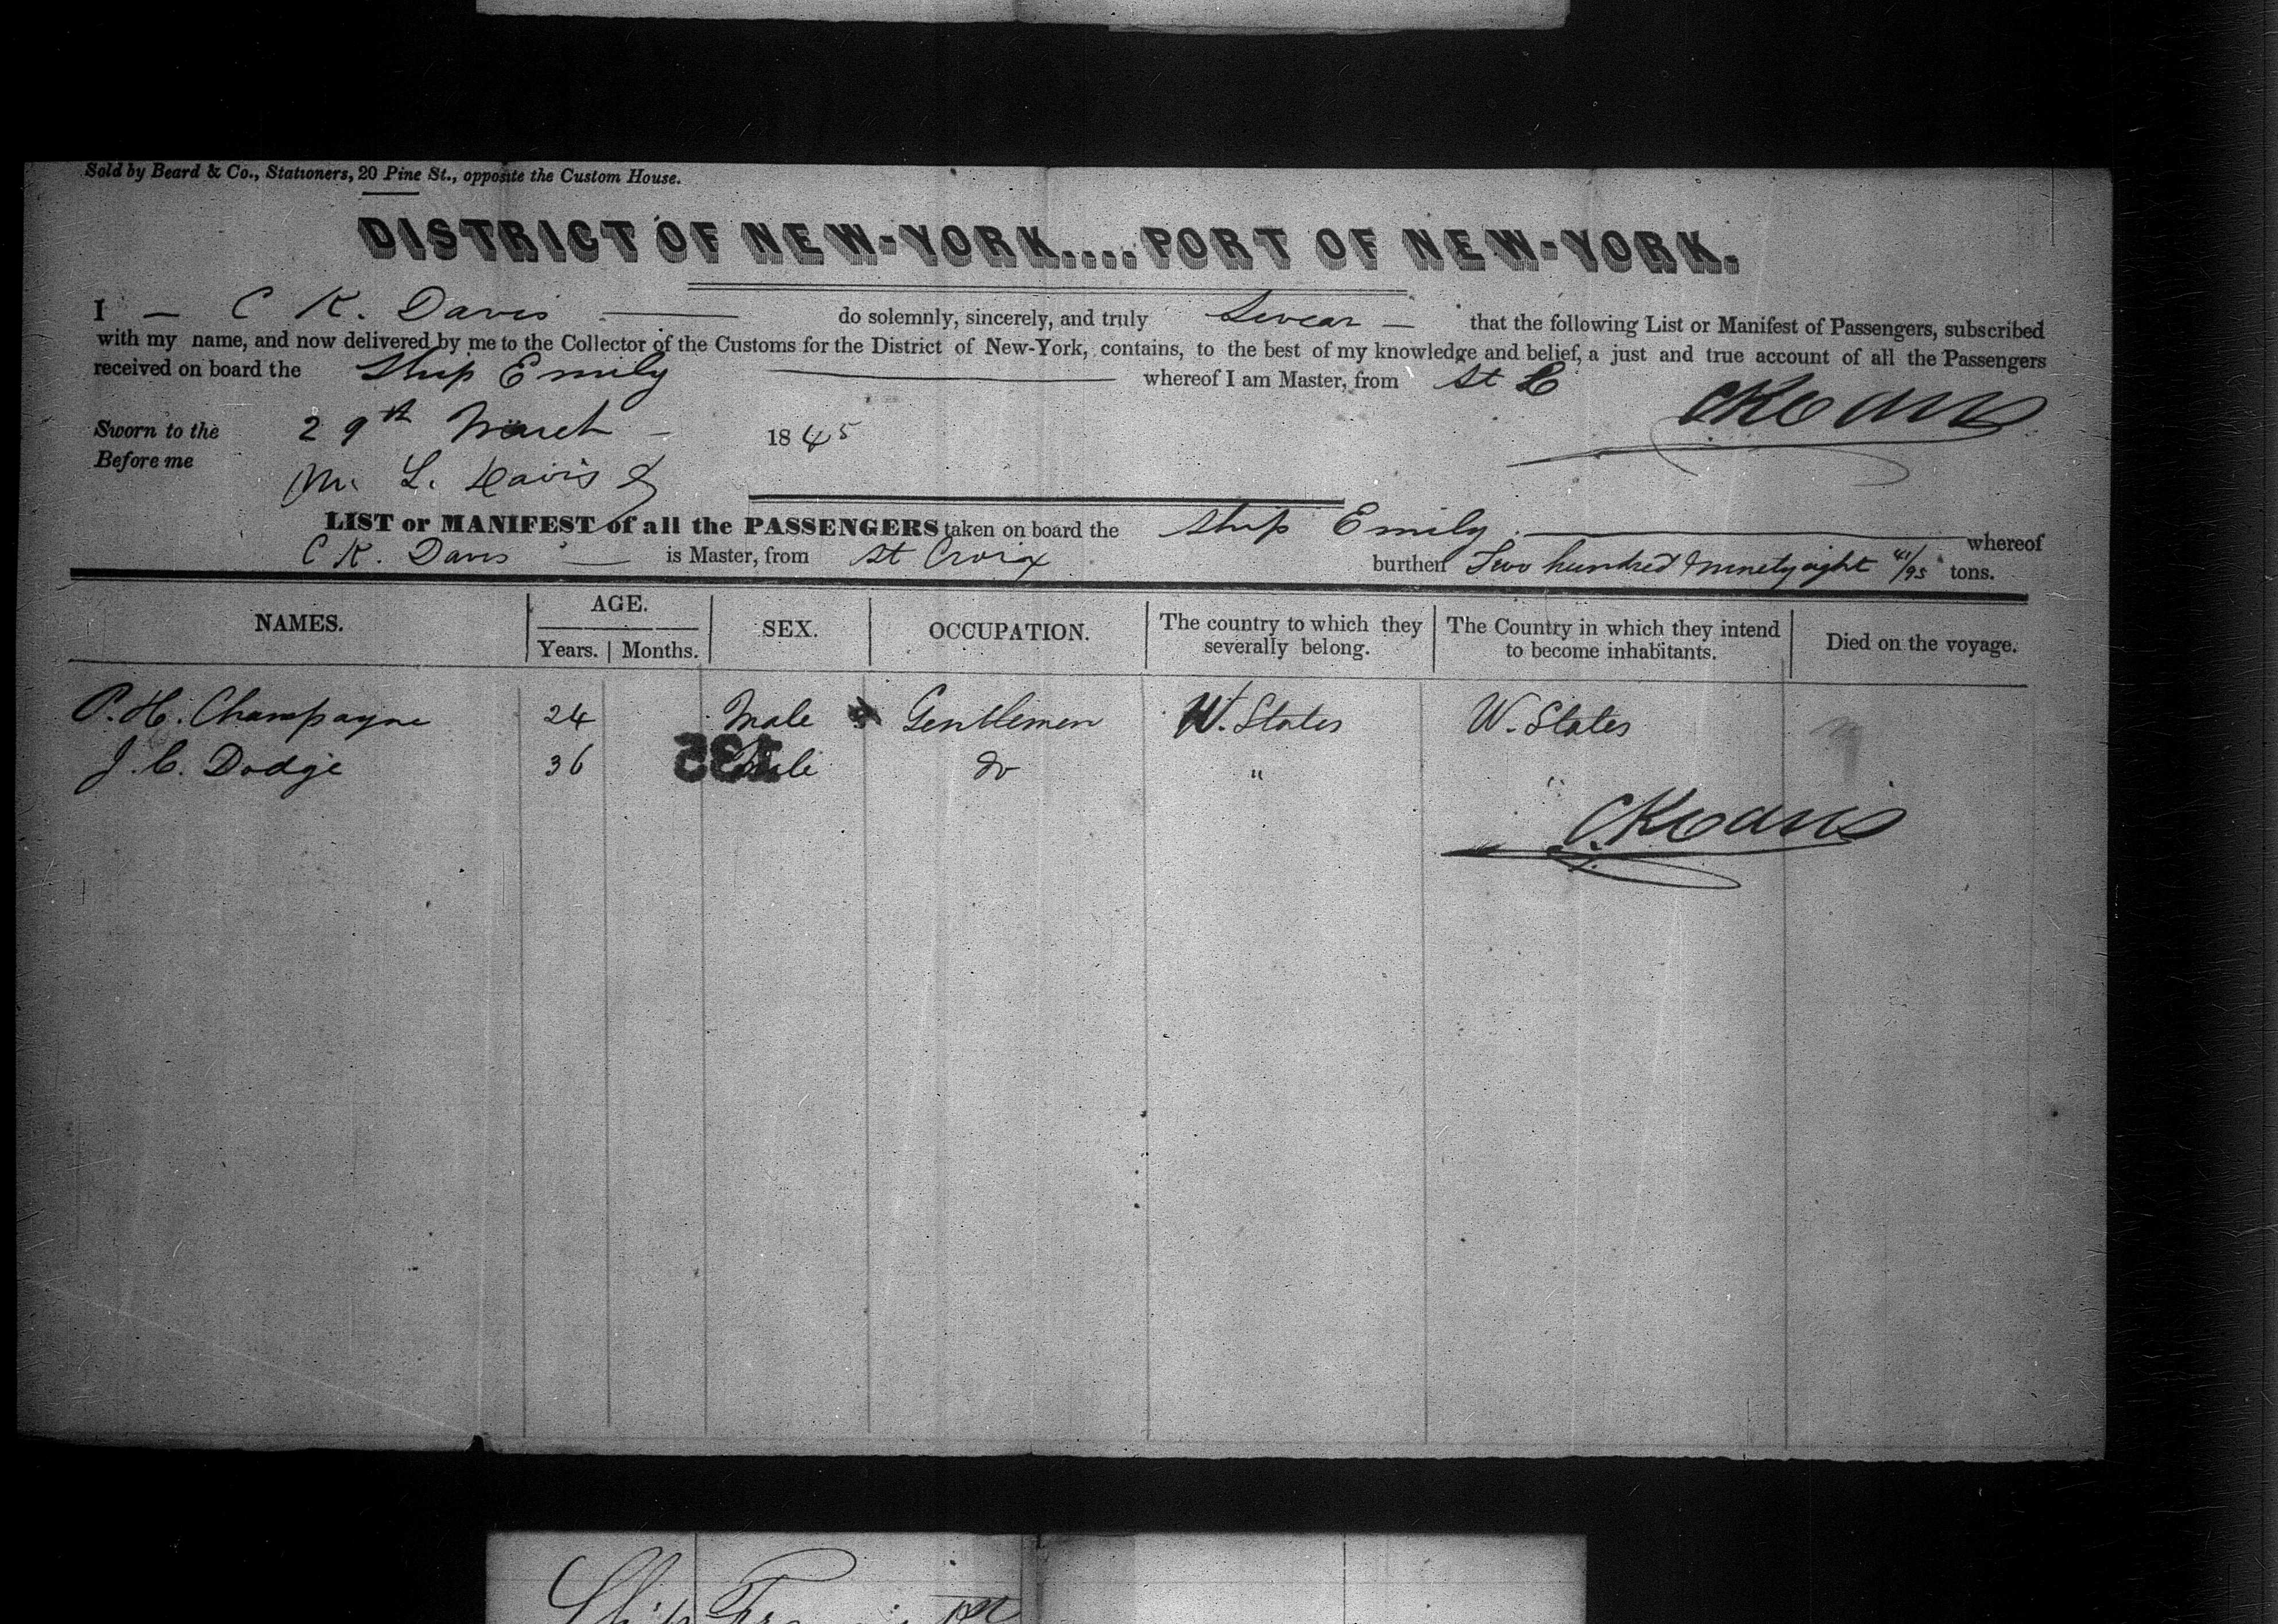 Sold by Beard & Co., Stationers, 20 Pine St., opposite the Custom House.
DISTRICT OF NEW-YORK....PORT OF NEW-YORK.
I — C K. Davis — do solemnly, sincerely, and truly Swear — that the following List or Manifest of Passengers, subscribed
with my name, and now delivered by me to the Collector of the Customs for the District of New-York, contains, to the best of my knowledge and belief, a just and true account of all the Passengers
received on board the Ship Emily — whereof I am Master, from St C
CK Davis
Sworn to the 29th March - 1845
Before me
M. L. Davis
LIST or MANIFEST of all the PASSENGERS taken on board the Ship Emily — whereof
C K. Davis — is Master, from St Croix burthen Two hundred & ninety eight 41/95 tons.
NAMES. AGE. SEX. OCCUPATION. The country to which they severally belong. The Country in which they intend to become inhabitants. Died on the voyage.
Years. Months.
P. H. Champayne 24 Male Gentlemen U. States U. States
J. C. Dodge 36 Male do " "
CK Davis
Ship